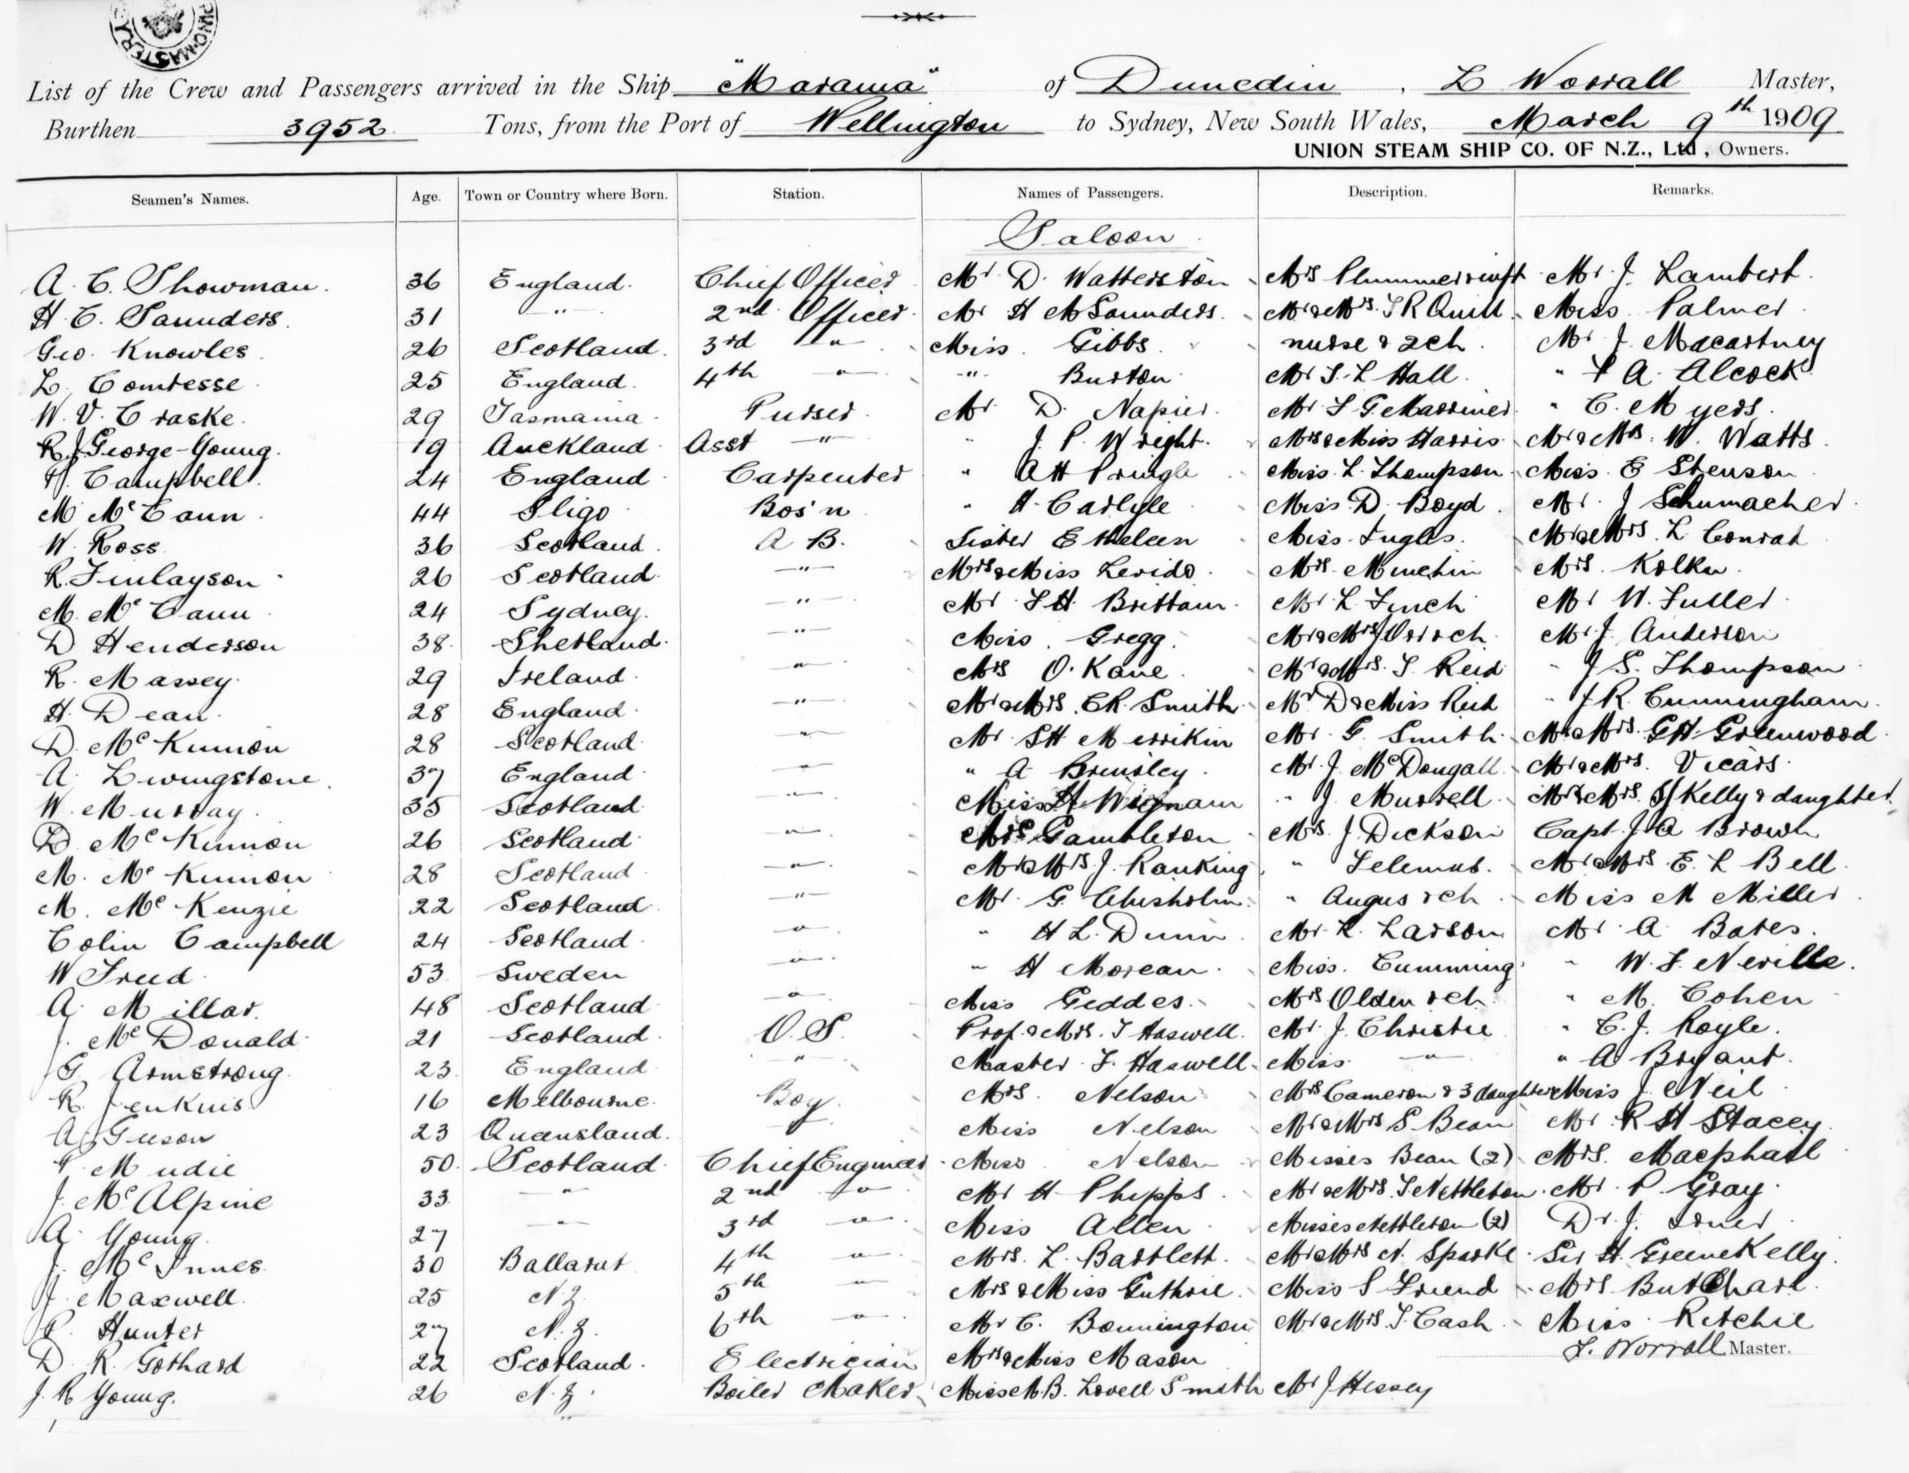 List of the Crew and Passengers arrived in the Ship "Marama" of Dunedin, L Worrall Master,
Burthen 3952 Tons, from the Port of Wellington to Sydney, New South Wales, March 9th 1909
UNION STEAM SHIP CO. OF N.Z., Ltd, Owners.
Seamen's Names. Age. Town or Country where Born. Station. Names of Passengers. Description. Remarks.
Saloon
A. C. Showman. 36 England. Chief Officer Mr D. Watterston Mrs Plummer & inft Mr. J. Lambert.
H. C. Saunders. 31 " 2nd Officer. Mr H M Saunders. Mr & Mrs. T R Quill. Miss Palmer
Geo. Knowles. 26 Scotland. 3rd " Miss Gibbs. nurse & 2ch. Mr J. Macartney
L. Comtesse 25 England. 4th " " Burton Mr S. L Hall. " A. Alcock
W. V. Craske. 29 Tasmania. Purser. Mr. D. Napier. Mr F G Marriner. " C. Myers.
R. J George-Young. 19 Auckland Asst " " J. P. Wright. Mrs & Miss Harris Mr & Mrs. W. Watts.
Campbell. 24 England Carpenter " A H Pringle Miss L. Thompson Miss E Stenson
M McCann. 44 Sligo Bos'n " H. Carlyle Miss D. Boyd. Mr. J Schumacher.
W. Ross. 36 Scotland. A B. Sister Etheleen Miss Inglis. Mr & Mrs. L. Conrad
R. Finlayson 26 Scotland " Mrs & Miss Levido. Mrs. Minchin Mrs. Kolkn.
M. McCann 24 Sydney. " Mr F H. Brittain. Mr L Finch Mr W. Fuller
D Henderson 38. Shetland. " Miss Gregg. Mr & Mrs J Orr & ch. Mr J. Anderson
R. Massey. 29 Ireland. " Mrs O. Kane. Mr & Mrs. T Reid " J S. Thompson
H. Dean. 28 England " Mr & Mrs. C R. Smith. Mr D & Miss Reid " R. Cunningham.
D. McKinnon 28 Scotland " Mr. S H Merrikin Mr. G. Smith. Mr & Mrs. G H Greenwood
A. Livingstone. 37 England " " A Brinsley. Mr. J. McDougall. Mr & Mrs. Vicars.
W. Murray. 35 Scotland " Miss H Wignam " J. Murrell. Mr & Mrs. Kelly & daughter.
D. McKinnon 26 Scotland " Mrs Gambleton Mrs. J. Dickson Capt. J A Brown
M. McKinnon 28 Scotland " Mr & Mrs J. Ranking " Selemus. Mr & Mrs E. L Bell.
M. McKenzie 22 Scotland. " Mr. G Chisholm. " Angus & ch Miss M Miller.
Colin Campbell 24 Scotland. " " H L. Dunn. Mr. L. Larson Mr. A. Bates.
W Freed. 53. Sweden " " H Morean. Miss. Cumming " W. F. Neville.
A. Millar. 48 Scotland " Miss Geddes. Mrs Olden & ch. " M. Cohen
J. McDonald. 21 Scotland. O. S. Prof. & Mrs. T Haswell. Mr. J. Christie " C. J. Royle.
G. Armstrong. 23. England " Master F. Haswell. Miss " " A Bryant.
R. Jenkins. 16 Melbourne. Boy. Mrs. Nelson Mrs Cameron & 3 daughters Miss J. Neil
A. 23 Queensland. " Miss Nelson Mr & Mrs S. Bean Mr. R H Stacey.
Mudie 50. Scotland Chief Engineer Miss Nelson Misses Bean (2) Mrs. Macphail
J. McAlpine 33 " 2nd " Mr H Phipps. Mr & Mrs. T Nettleton. Mr. P. Gray.
A. Young. 27 " 3rd " Miss Allen Misses Nettleton (2) Dr. J.
J. McInnes. 30 Ballarat 4th " Mrs. L. Bartlett. Mr & Mrs N. Sparke. Sir H. Greene Kelly.
J. Maxwell. 25 N. Z. 5th " Mrs & Miss Guthrie. Miss S Friend Mrs Butchart.
P. Hunter 27 N. Z. 6th " Mr C. Bonnington Mr & Mrs. T. Cash. Miss Ritchie
D. R. Gothard 22 Scotland. Electrician Mrs & Miss Mason L. Worrall Master.
J. R Young. 26 N. Z. Boiler Maker Miss M B. Lovell Smith Mr J Hessey